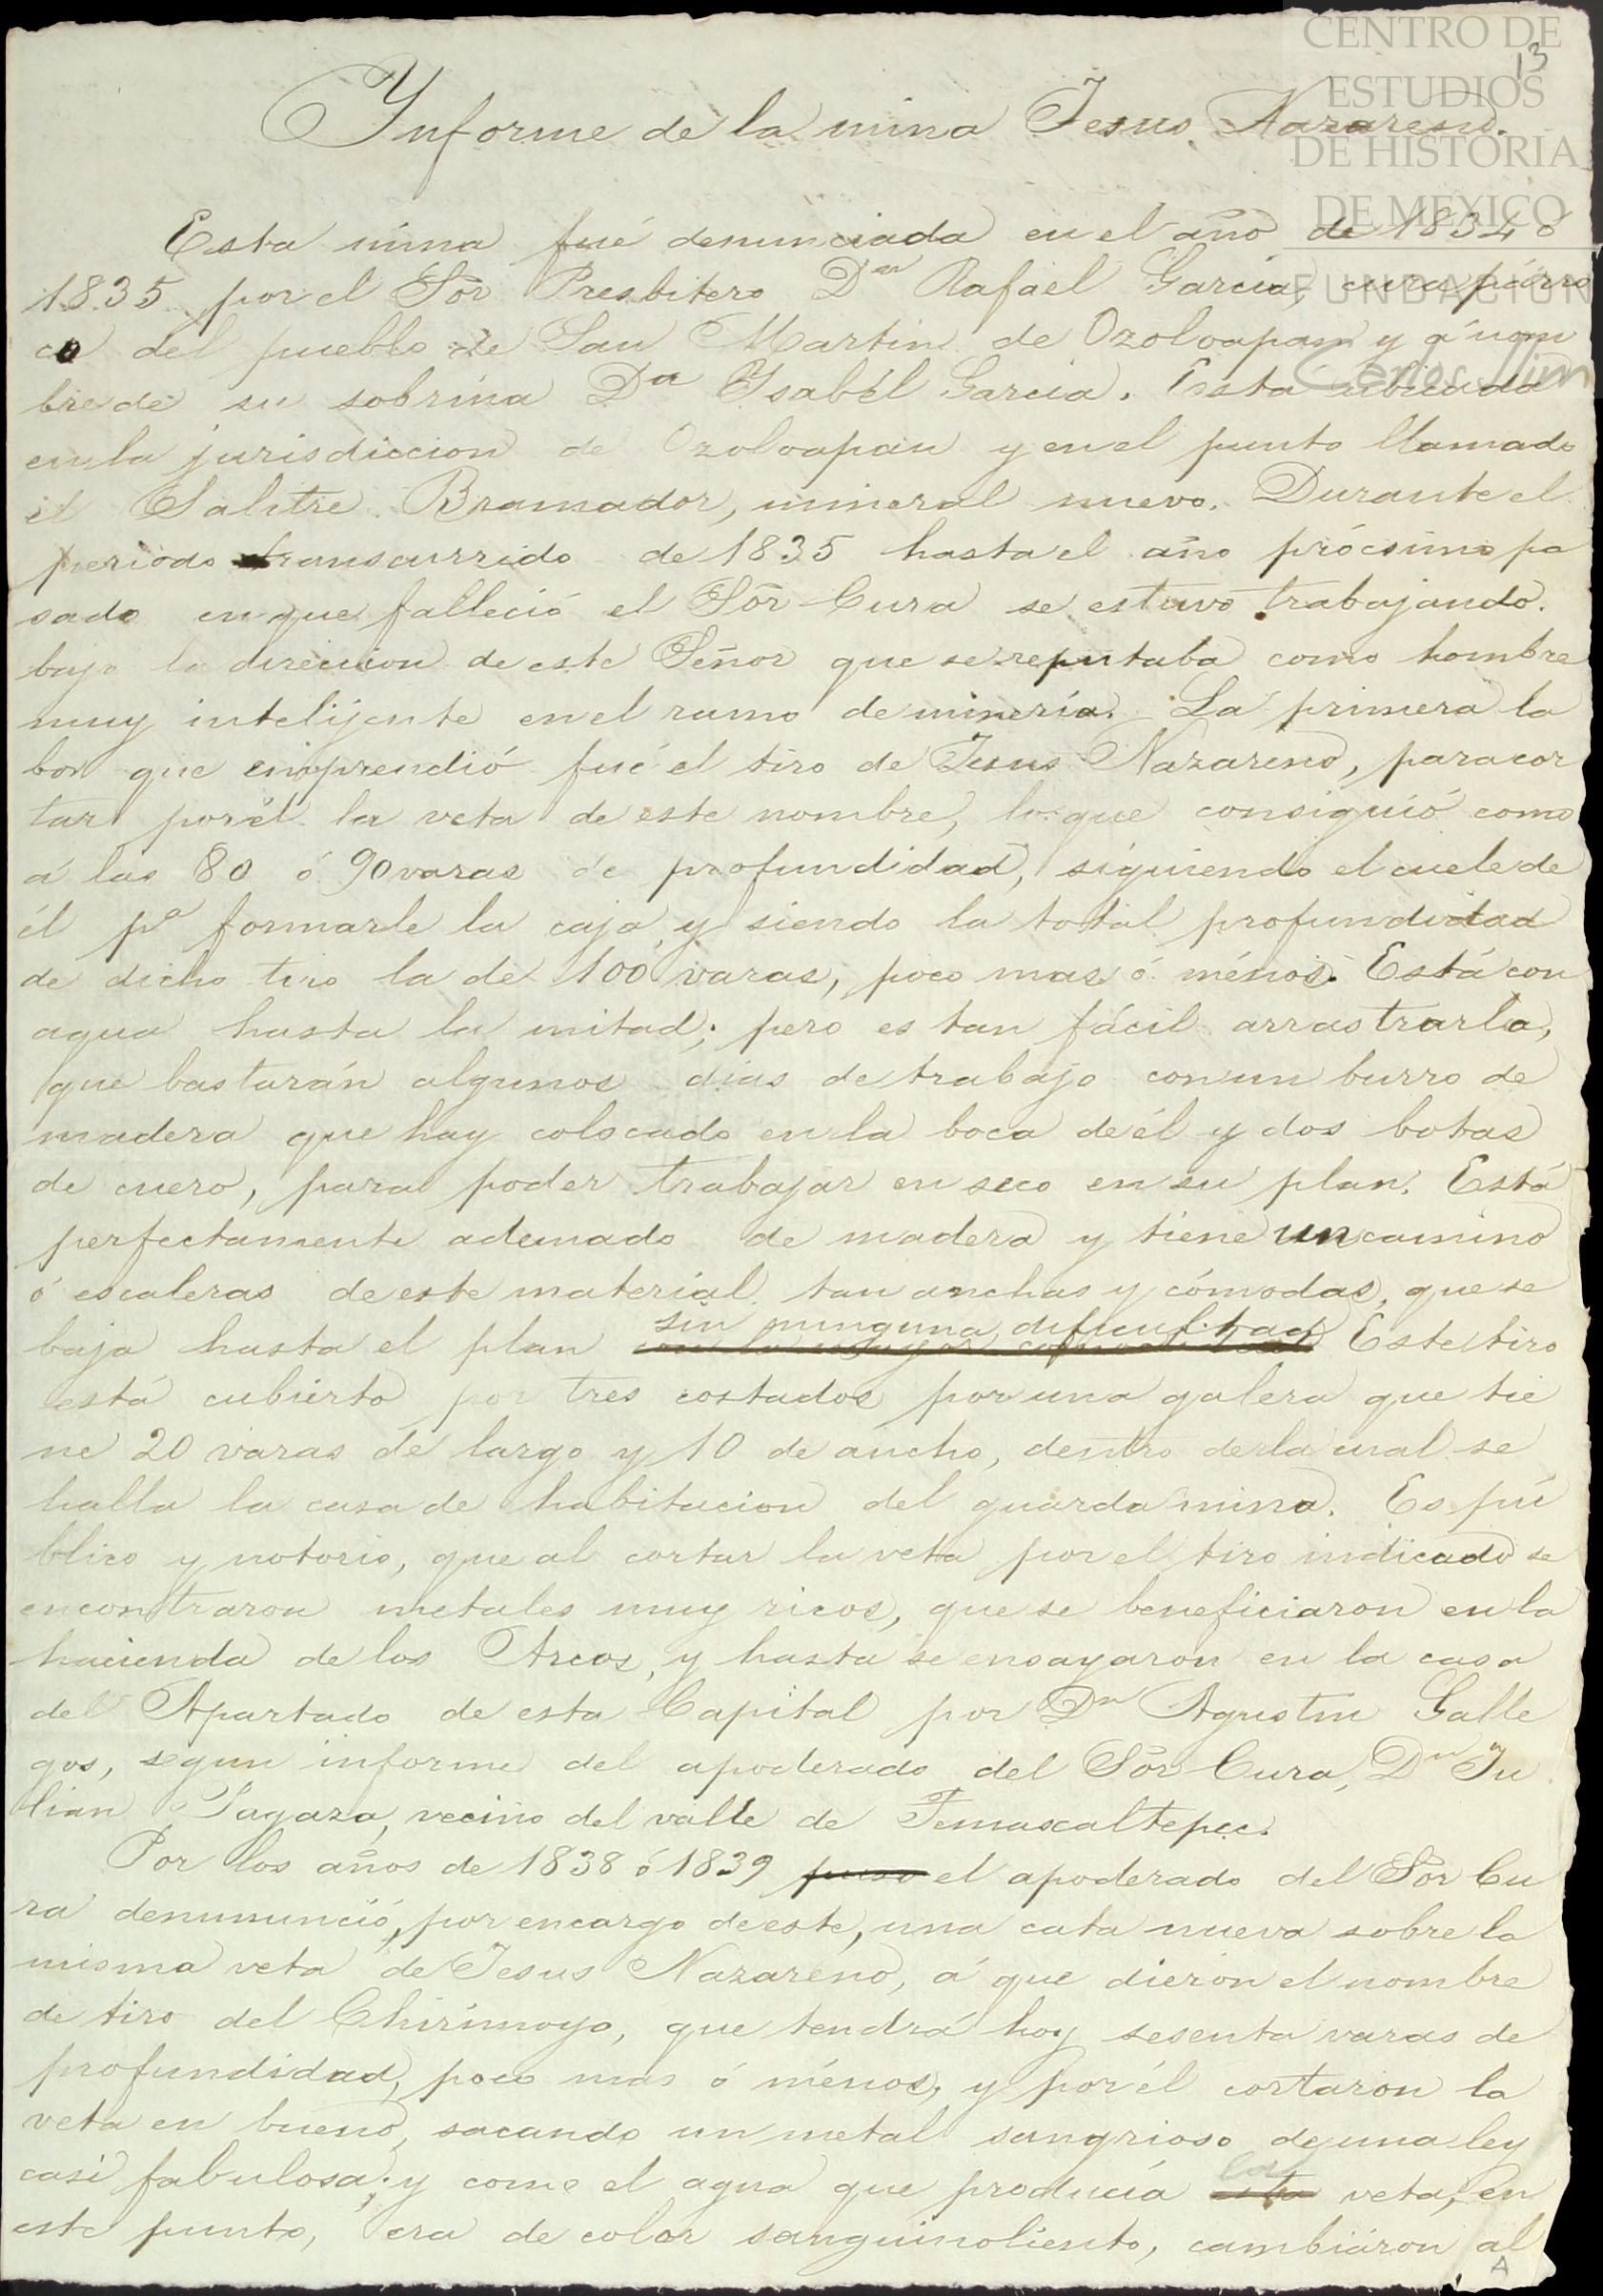 CENTRO DE
ESTUDIOS
DE HISTORIA
DE MEXICO
FUNDACIÓN
Carlos Slim
13
Ynforme de la mina Jesus Nazareno.
Esta mina fué denunciada en el año de 1834 ó
1835 por el Sõr Presbitero Dn Rafaél García, cura párro
co del pueblo de San Martin de Ozoloapan y á nom
bre de su sobrina Da Ysabél Garcia. Está ubicada
en la jurisdiccion de Ozoloapan y en el punto llamado
el Salitre Bramador, mineral nuevo. Durante el
periodo transcurrido de 1835 hasta el año prócsimo pa
sado en que falleció el Sõr Cura se estuvo trabajando
bajo la direccion de este Señor que se reputaba como hombre
muy intelijente en el ramo de minería. La primera la
bor que emprendió fué el tiro de Jesus Nazareno, para cor
tar por él la veta de este nombre, lo que consiguió como
á las 80 ó 90 varas de profundidad, siguiendo el cuele de
él pa formarle la caja, y siendo la total profundidad
de dicho tiro la de 100 varas, poco mas ó ménos. Está con
agua hasta la mitad; pero es tan fácil arrastrarla,
que bastarán algunos dias de trabajo con un burro de
madera que hay colocado en la boca de él y dos botas
de cuero, para poder trabajar en seco en su plan. Está
perfectamente ademado de madera y tiene un camino
ó escaleras de este material tan anchas y cómodas, que se
sin ninguna dificultad
baja hasta el plan con la mayor comodidad Este tiro
está cubierto por tres costados por una galera que tie
ne 20 varas de largo y 10 de ancho, dentro de la cual se
halla la casa de habitacion del guarda mina. Es pú
blico y notorio, que al cortar la veta por el tiro indicado se
encontraron metales muy ricos, que se beneficiaron en la
hacienda de los Arcos, y hasta se ensayaron en la casa
del Apartado de esta Capital por Dn Agustin Galle
gos, segun informe del apoderado del Sõr Cura, Dn Ju
lian Sagaza, vecino del valle de Temascaltepec.
Por los años de 1838 ó 1839 puso el apoderado del Sõr Cu
ra denumunció, por encargo de este, una cata nueva sobre la
misma veta de Jesus Nazareno, á que dieron el nombre
de tiro del Chirimoyo, que tendrá hoy sesenta varas de
profundidad, poco mas ó ménos, y por él cortaron la
veta en bueno, sacando un metal sangrioso de una ley
la
casi fabulosa; y como el agua que producía esta veta, en
este punto, era de color sanguinoliento, cambiáron al
A